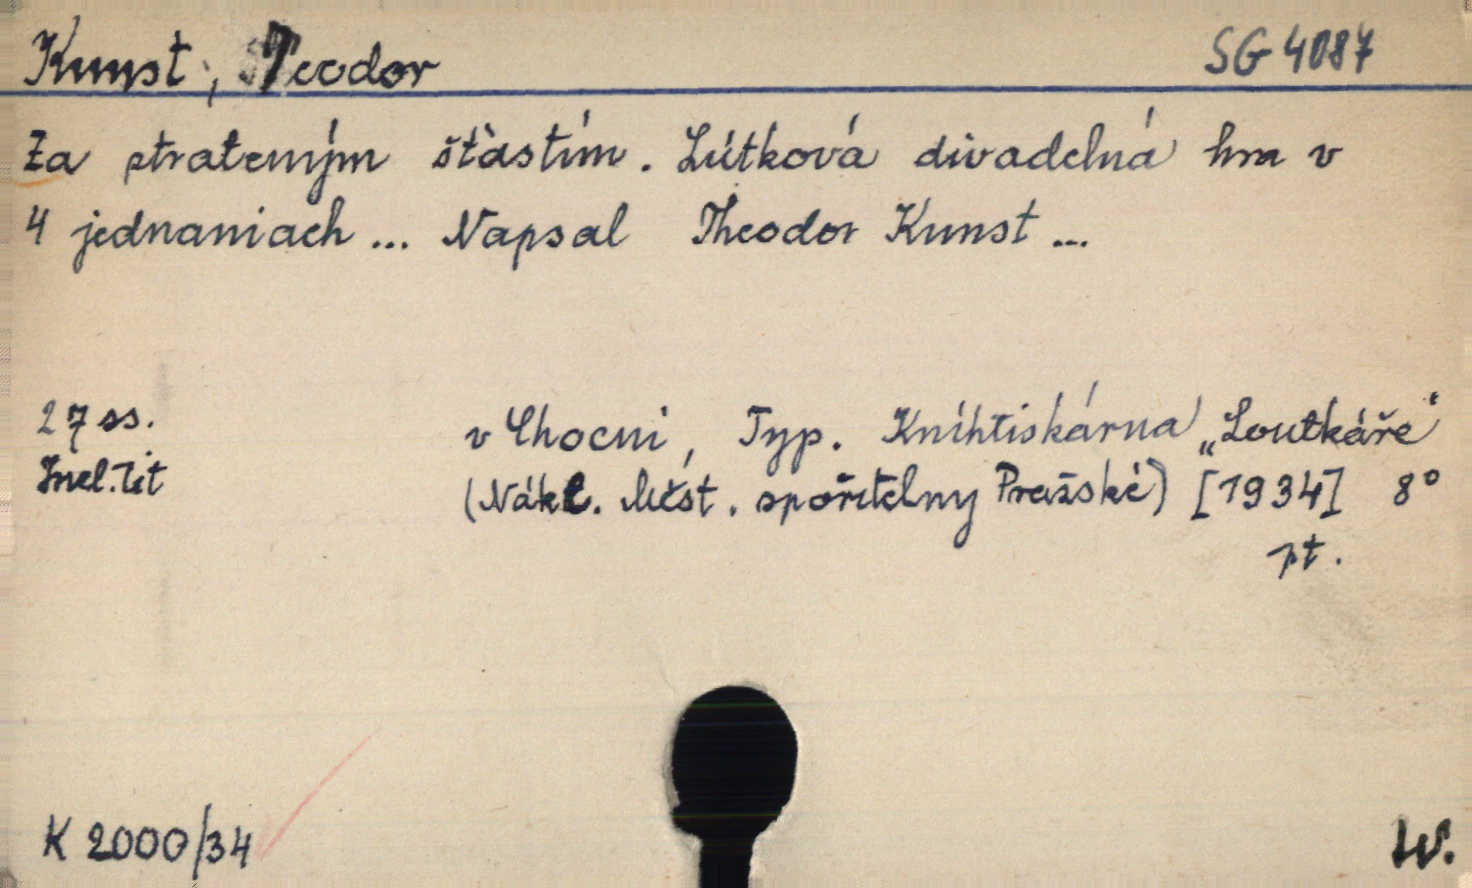 Kunst, Teodor SG 4087
Za strateným šťastím. Lútková divadelná hra v
4 jednaniach ... Napsal Theodor Kunst ...
27 ss. v Chocni, Typ. Knihtiskárna „Loutkáře“
Incl. tit (Nákl. Měst. spořitelny Pražské) [1934] 8°
pt.
K 2000/34 W.